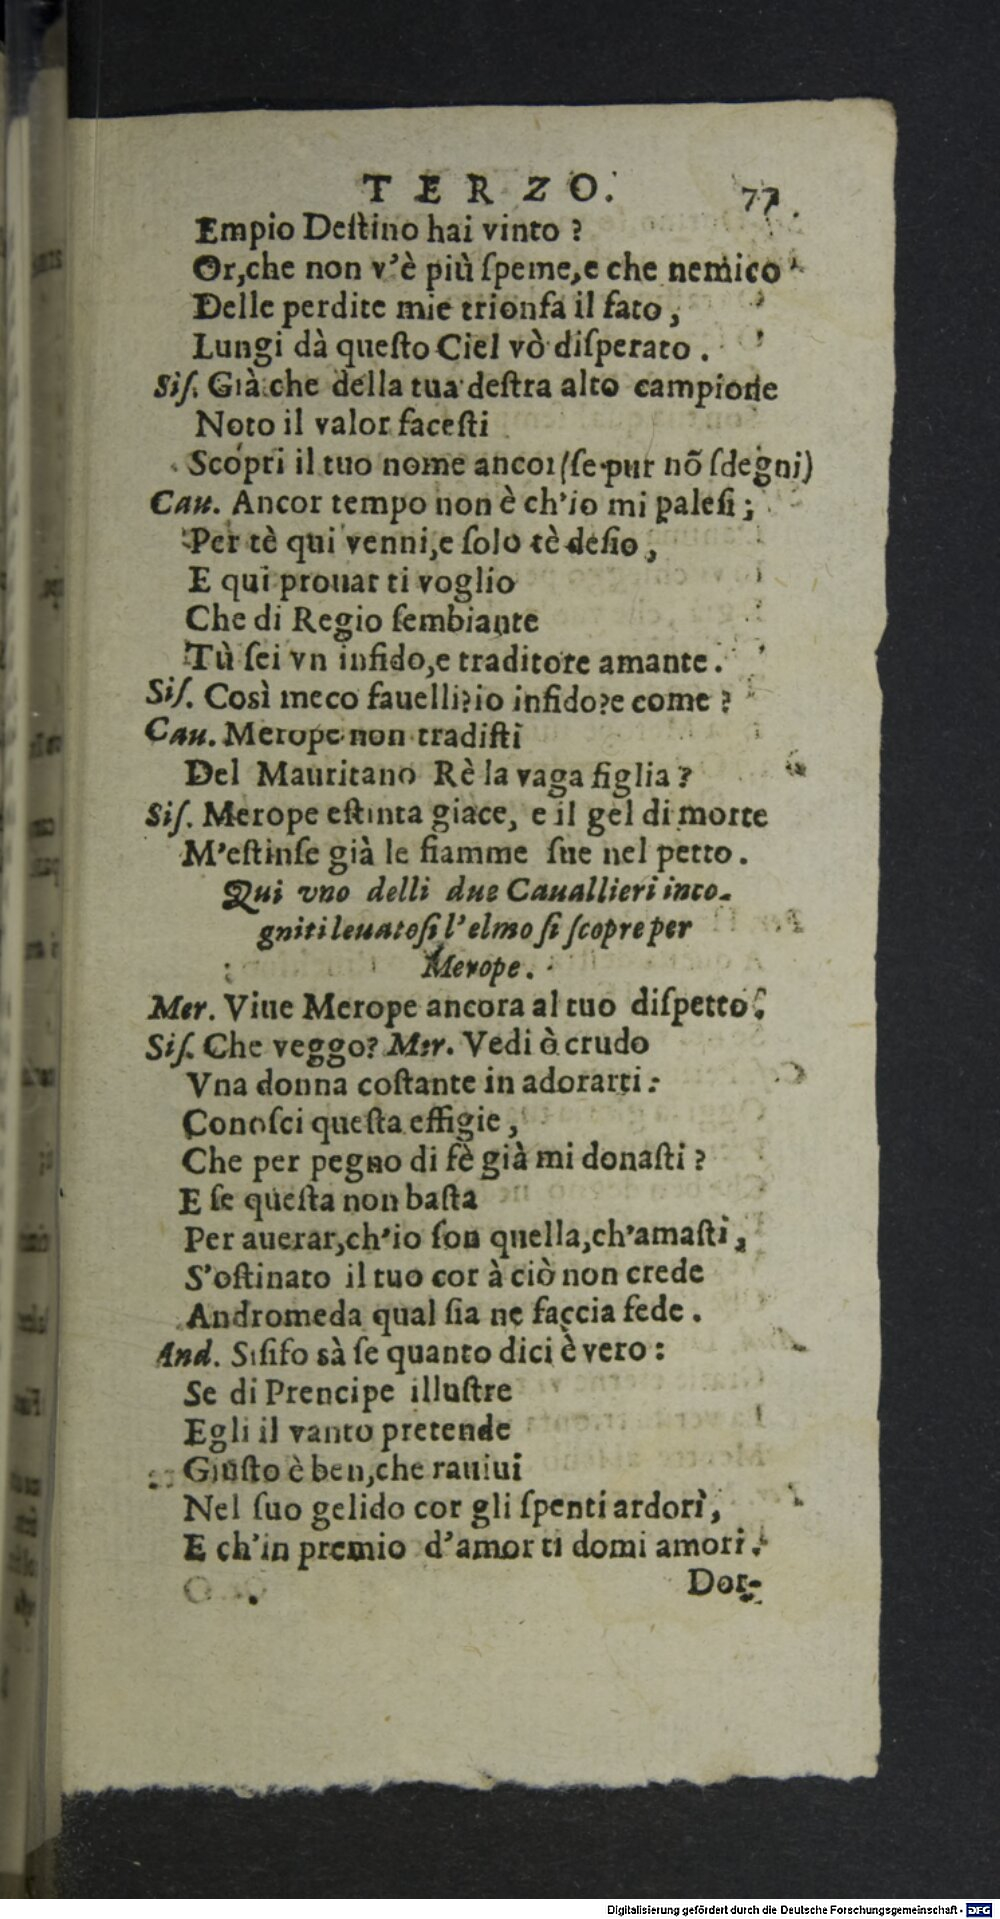 TERZO. 77
Empio Deſtino hai vinto ?
Or,che non v'è più ſpeme,e che nemico
Delle perdite mie trionfa il fato ,
Lungi dà queſto Ciel vò diſperato .
Siſ. Già che della tua deſtra alto campione
Noto il valor faceſti
Scopri il tuo nome ancor (ſe pur nõ ſdegni)
Cau. Ancor tempo non è ch'io mi paleſi ;
Per tè qui venni,e ſolo tè deſio ,
E qui prouar ti voglio
Che di Regio ſembiante
Tù ſei vn infido,e traditore amante .
Siſ. Così meco fauelli?io infido?e come ?
Cau. Merope non tradiſti
Del Mauritano Rè la vaga figlia ?
Siſ. Merope eſtinta giace, e il gel di morte
M'eſtinſe già le fiamme ſue nel petto .
Qui vno delli due Cauallieri inco-
gniti leuatoſi l'elmo ſi ſcopre per
Merope .
Mer. Viue Merope ancora al tuo diſpetto.
Siſ. Che veggo? Mer. Vedi ò crudo
Vna donna coſtante in adorarti :
Conoſci queſta effigie ,
Che per pegno di fè già mi donaſti ?
E ſe queſta non baſta
Per auerar,ch'io ſon quella,ch'amaſti ,
S'oſtinato il tuo cor à ciò non crede
Andromeda qual ſia ne faccia fede .
And. Siſifo sà ſe quanto dici è vero :
Se di Prencipe illuſtre
Egli il vanto pretende
Giuſto è ben,che rauiui
Nel ſuo gelido cor gli ſpenti ardori ,
E ch'in premio d'amor ti domi amori .
Dor-
Digitalisierung gefördert durch die Deutsche Forschungsgemeinschaft - DFG